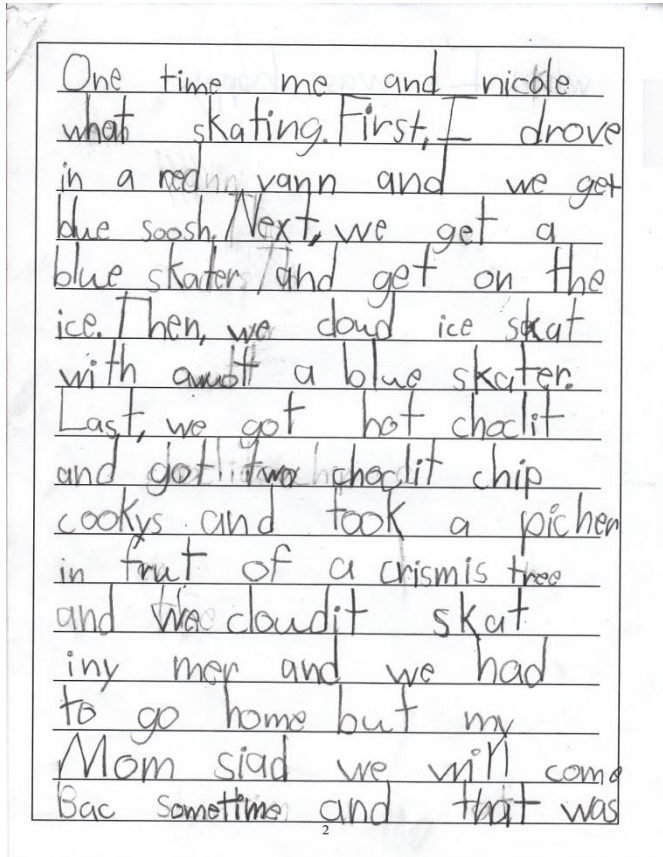 One time me and nicole
what skating. First, I drove
in a red vann and we get
blue soosh. Next, we get a
blue skater and get on the
ice. Then, we cloud ice skat
with awott a blue skater.
Last, we got hot choclit
and got two choclit chip
cookys and took a picher
in frut of a crismis tree
and We cloudit skat
iny mer and we had
to go home but my
Mom siad we will come
Bac sometime and that was
2